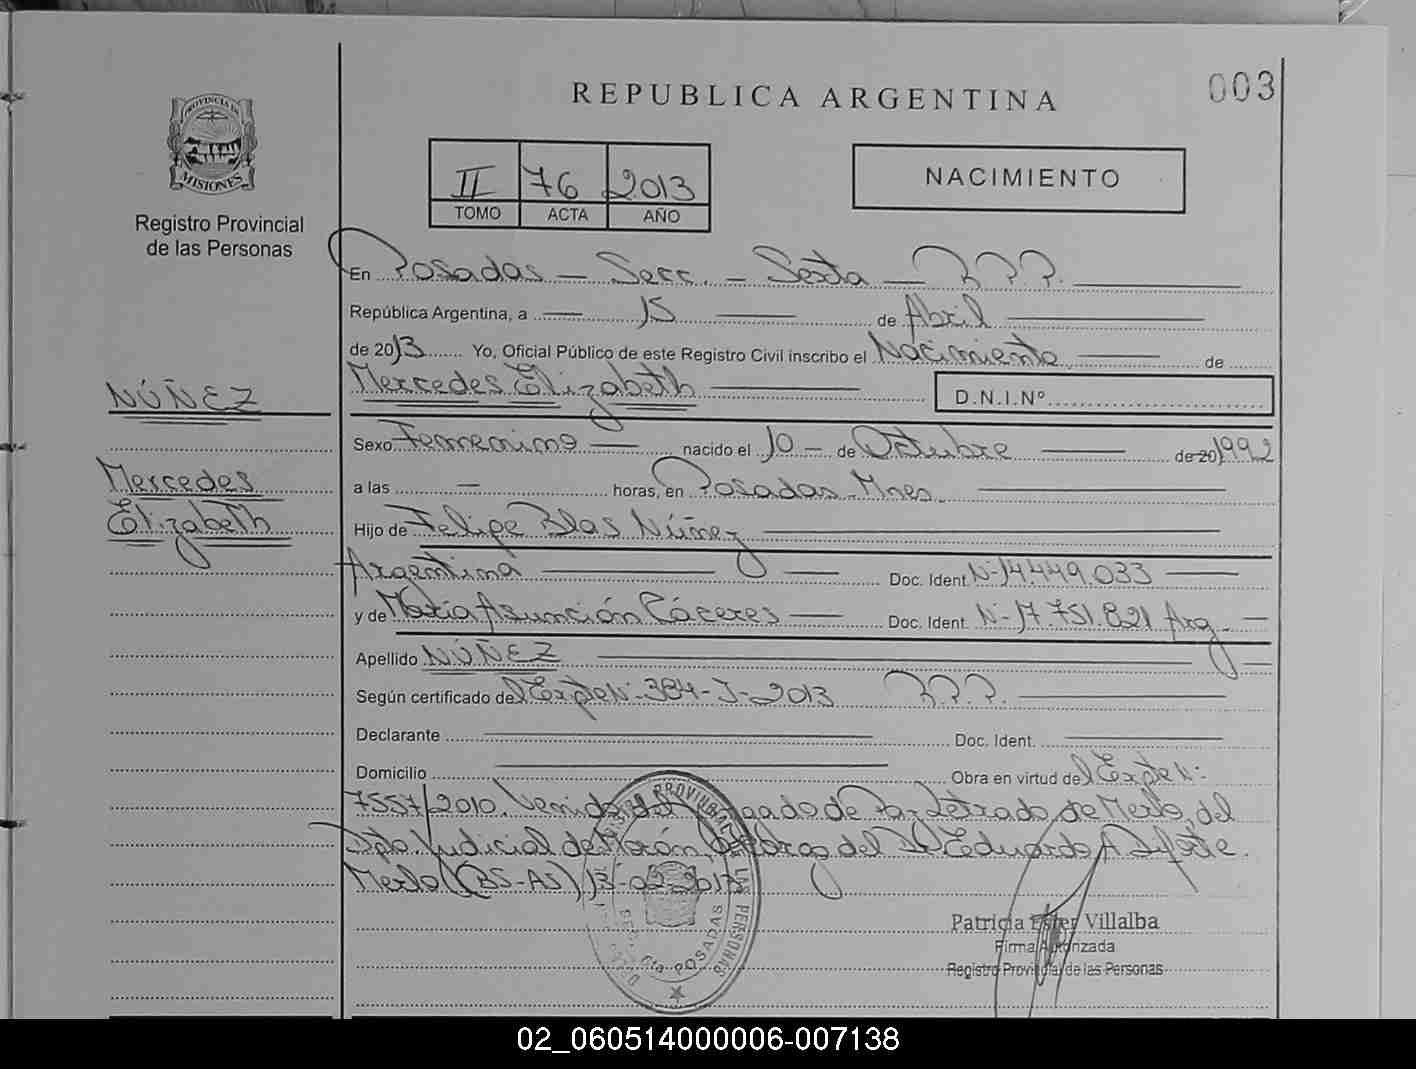 003
REPUBLICA ARGENTINA
PROVINCIA DE
MISIONES
Registro Provincial
de las Personas
II 76 2013
TOMO ACTA AÑO
NACIMIENTO
En Posadas - Secc. - Sexta - R.P.P.
República Argentina, a 15 de Abril
de 2013 Yo, Oficial Público de este Registro Civil inscribo el Nacimiento de
Mercedes Elizabeth D.N.I.Nº
NÚÑEZ
Sexo Femenino nacido el 10 - de Octubre de 20 1992
Mercedes
a las - horas, en Posadas Mnes.
Elizabeth
Hijo de Felipe Blas Núñez
Argentina Doc. Ident. Nº 14.449.033
y de María Asunción Cáceres Doc. Ident. Nº 17.751.821 Arg.
Apellido NÚÑEZ
Según certificado del Expte Nº 384-J-2013 R.P.P.
Declarante Doc. Ident.
Domicilio Obra en virtud del Expte Nº:
7557/2010. Venido del Juzgado de Paz Letrado de Merlo, del
Dpto. Judicial de Morón, a cargo del Dr. Eduardo A.
Merlo (BS-AS) 13-02-2013
REGISTRO PROVINCIAL DE LAS PERSONAS
SECC. 6ta POSADAS
Patricia Ester Villalba
Firma Autorizada
Registro Provincial de las Personas
02_060514000006-007138